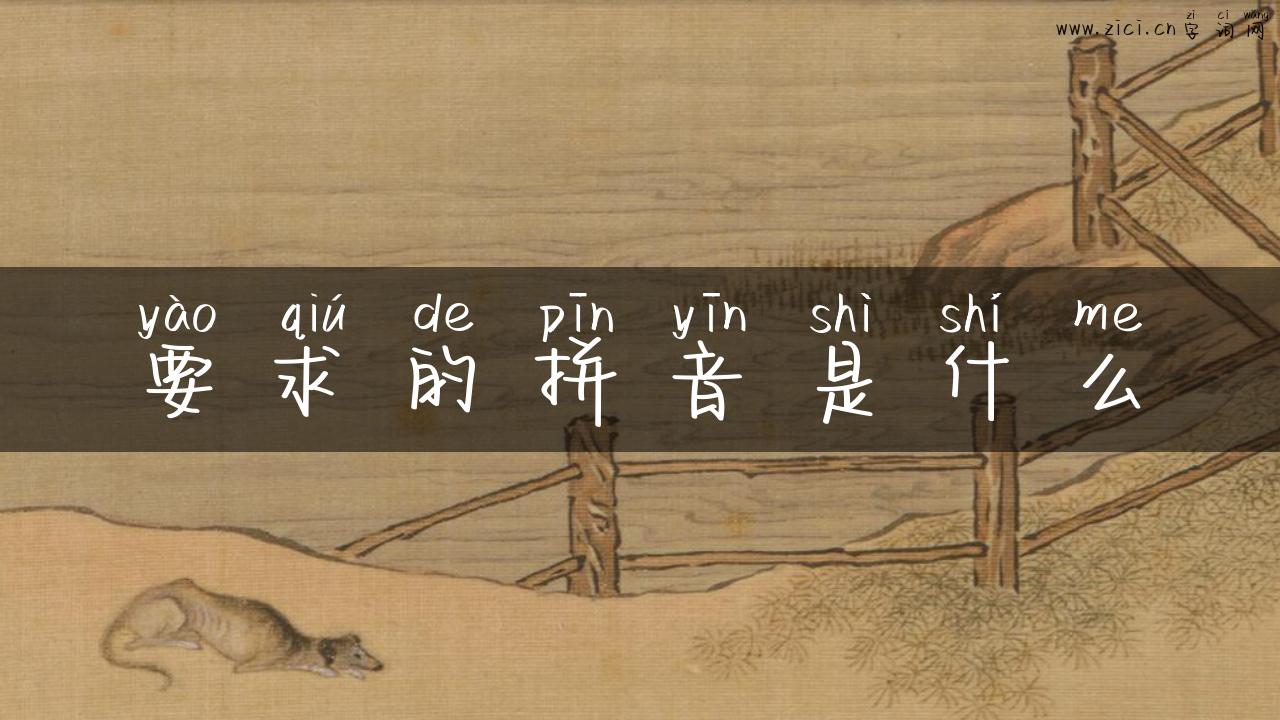 zì cí wǎng
www.zici.cn 字词网
yào qiú de pīn yīn shì shí me
要求的拼音是什么